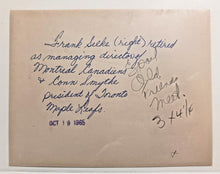 Frank Selke (right) retired
as managing director
Montreal Canadiens
& Conn Smythe
president of Toronto
Maple Leafs.
Old
Friends
Meet.
OCT 19 1965
3 x 4 1/2